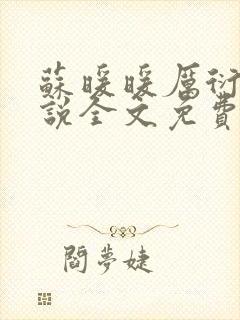 蘇暖暖厲衍
說全文免費
閻夢婕